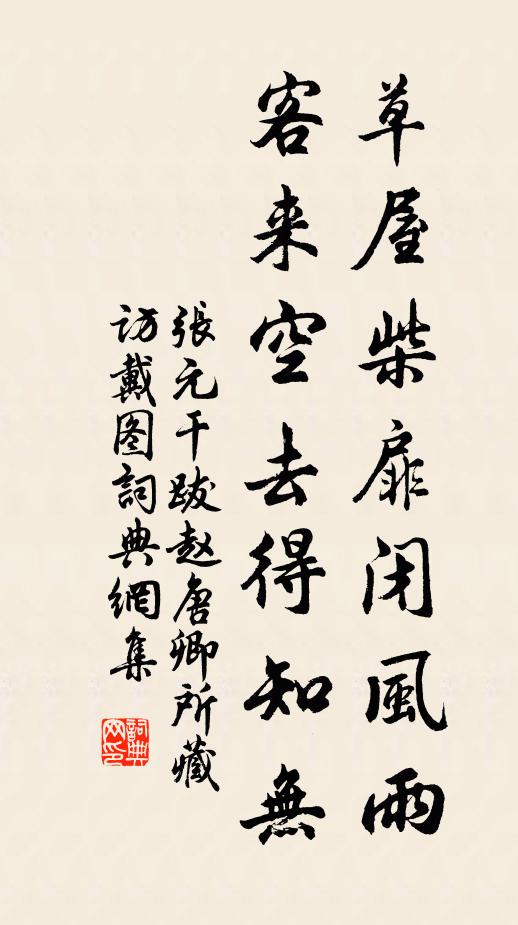 草屋柴扉闭風雨
客来空去得知無
張元干跋赵唐卿所藏
访戴图詞典網集
詞典网印